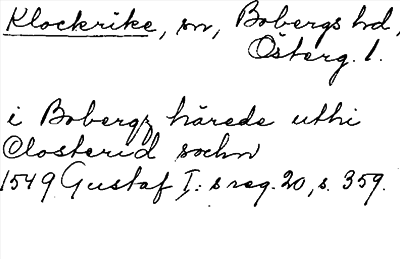 Klockrike, sn, Bobergs hd,
Österg. l.
i Bobergz härede uthi
Closterid sochn
1549 Gustaf I: s reg. 20, s. 359.